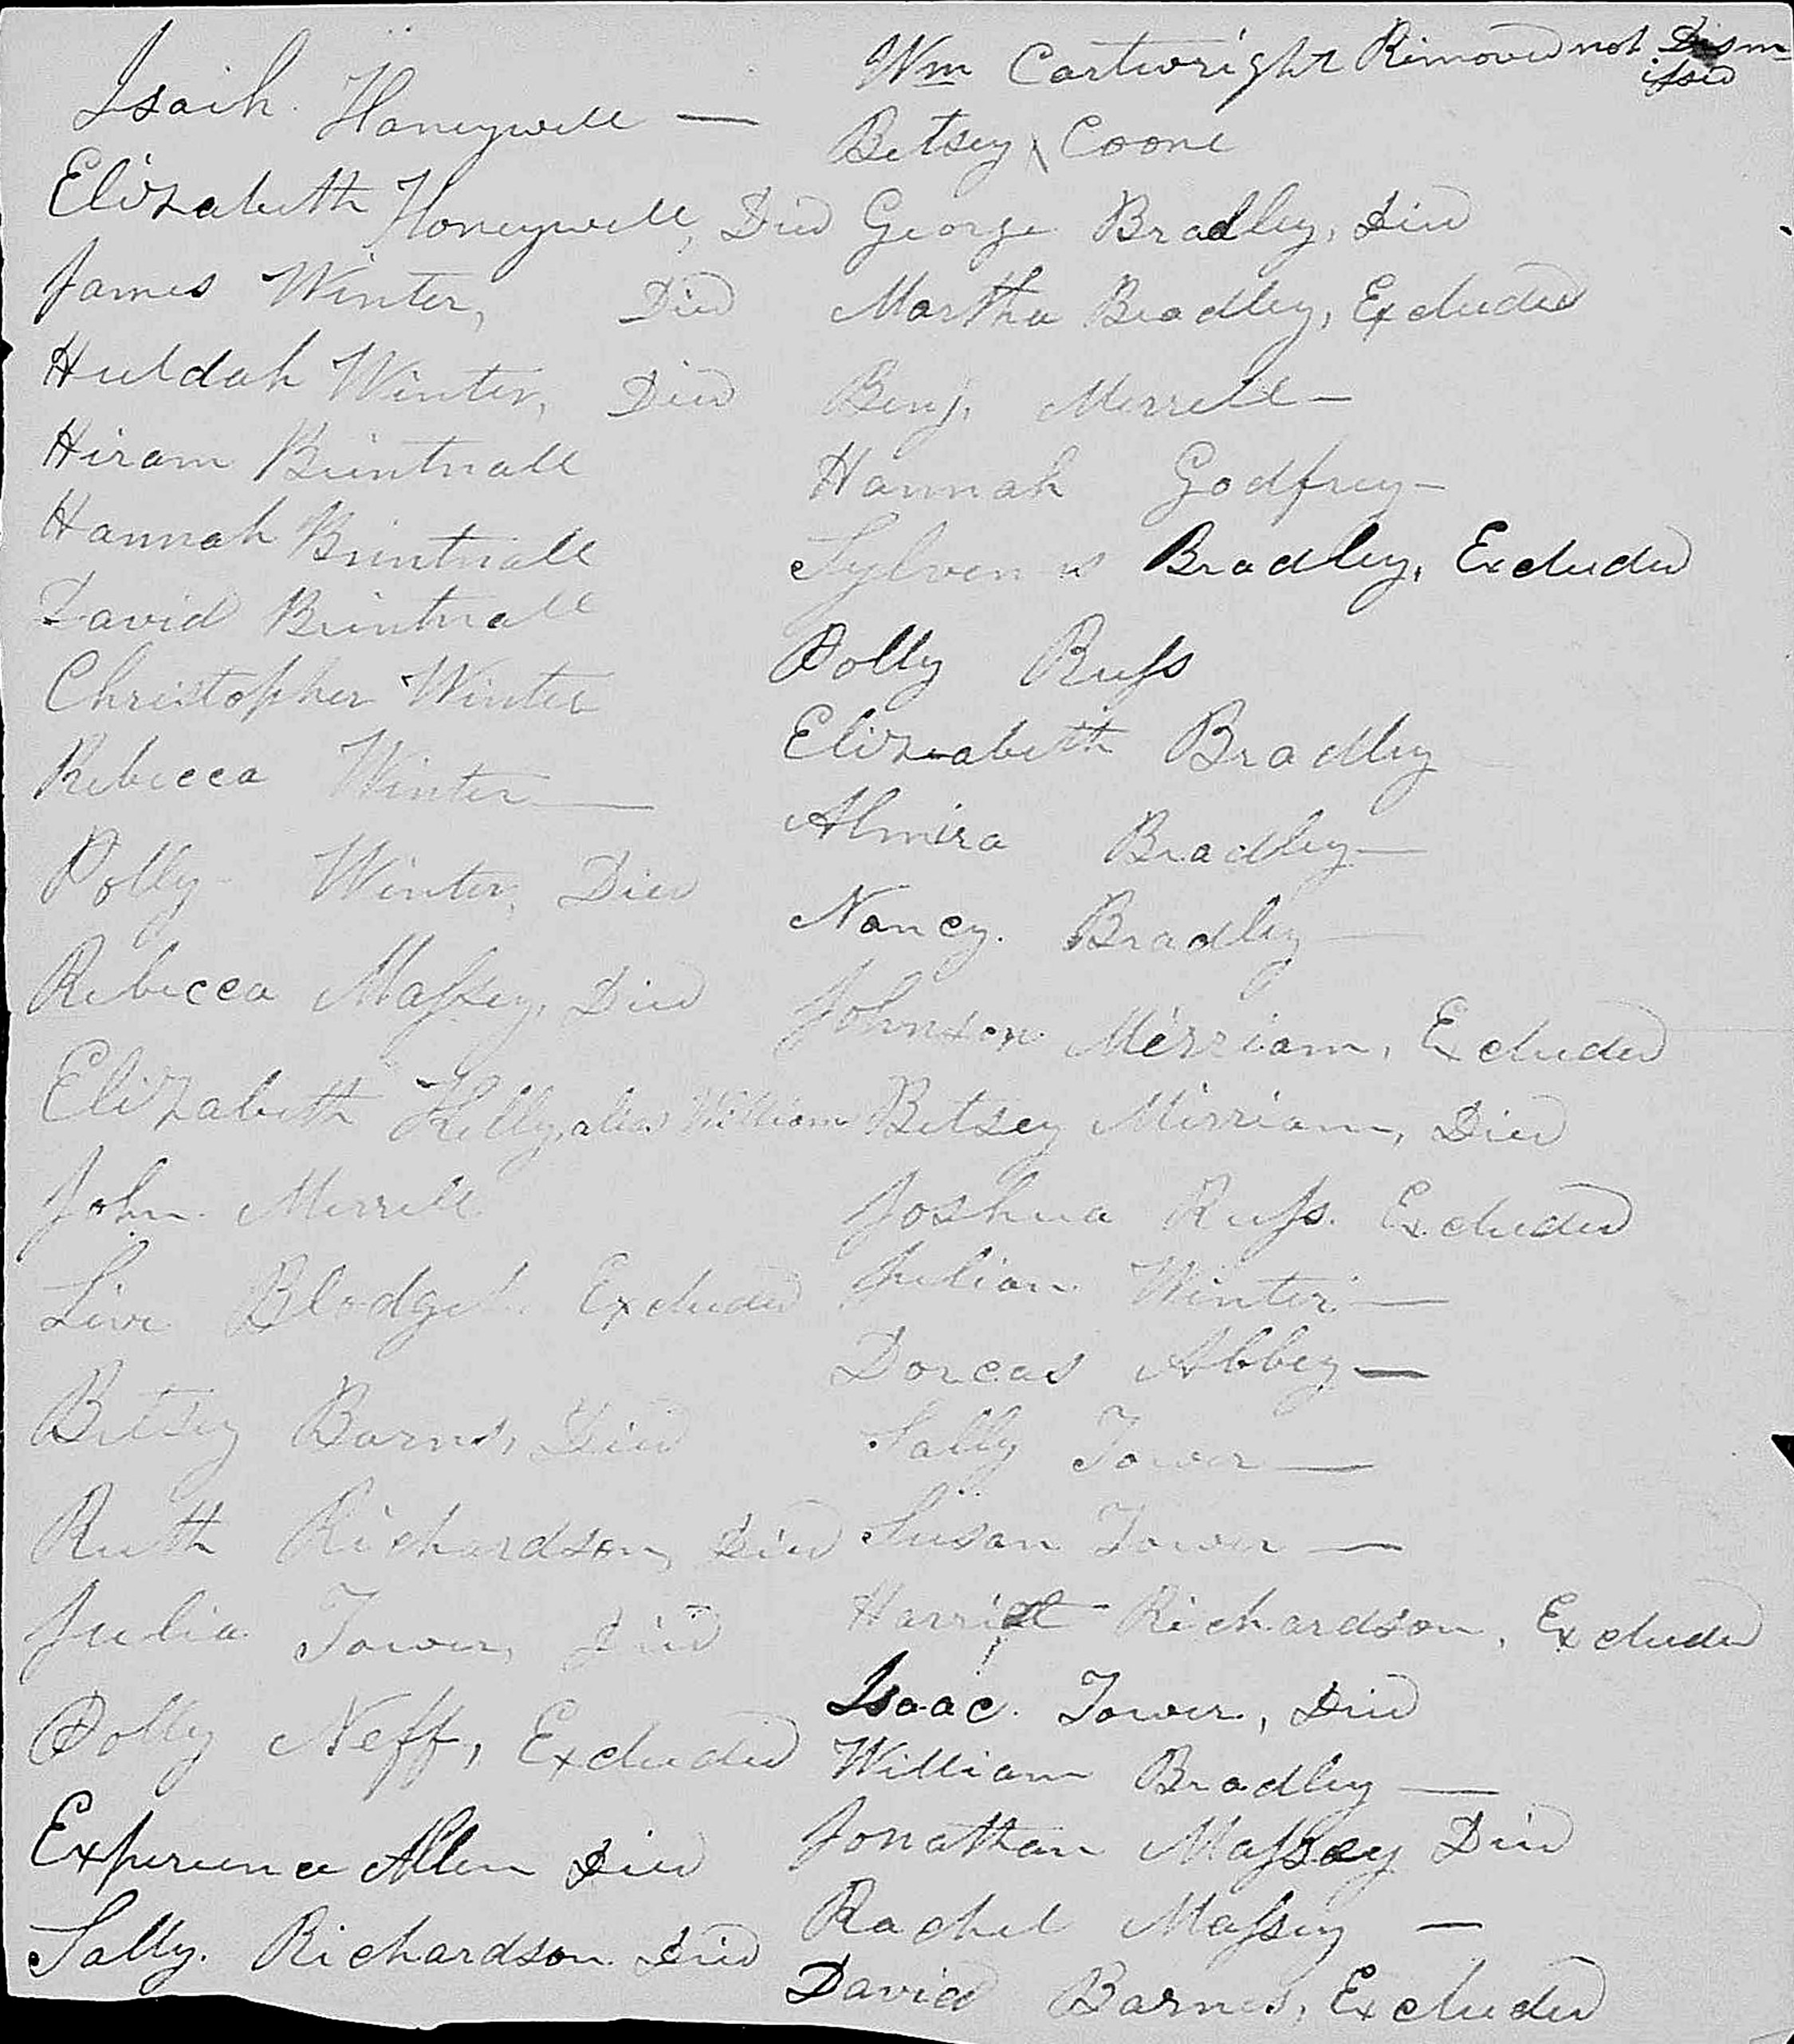 Isaih Honeywell —
Elizabeth Honeywell, Died
James Winter, Died
Huldah Winter, Died
Hiram Brintnall
Hannah Brintnall
David Brintnall
Christopher Winter
Rebecca Winter —
Polly Winter, Died
Rebecca Massey, Died
Elizabeth Kelly, alias William
John Merrell
Blodget Excluded
Betsey Barns, Died
Ruth Richardson, Died
Julia Tower, Died
Polly Neff, Excluded
Experience Allen Died
Sally. Richardson Died
Wm Cartwright Removed not Dism-
issed
Betsey Coone
George Bradley, Died
Martha Bradley, Excluded
Benj. Merrell —
Hannah Godfrey —
Sylvenus Bradley, Excluded
Polly Russ
Elizabeth Bradley
Almira Bradley —
Nancy. Bradley —
Johnson Merriam, Excluded
Betsey Mirriam, Died
Joshua Russ. Excluded
Julian Winter —
Dorcas Abbey —
Sally Tower —
Susan Tower —
Harriet Richardson, Excluded
Isaac. Tower, Died
William Bradley —
Jonathan Massey Died
Rachel Massey —
David Barnes, Excluded